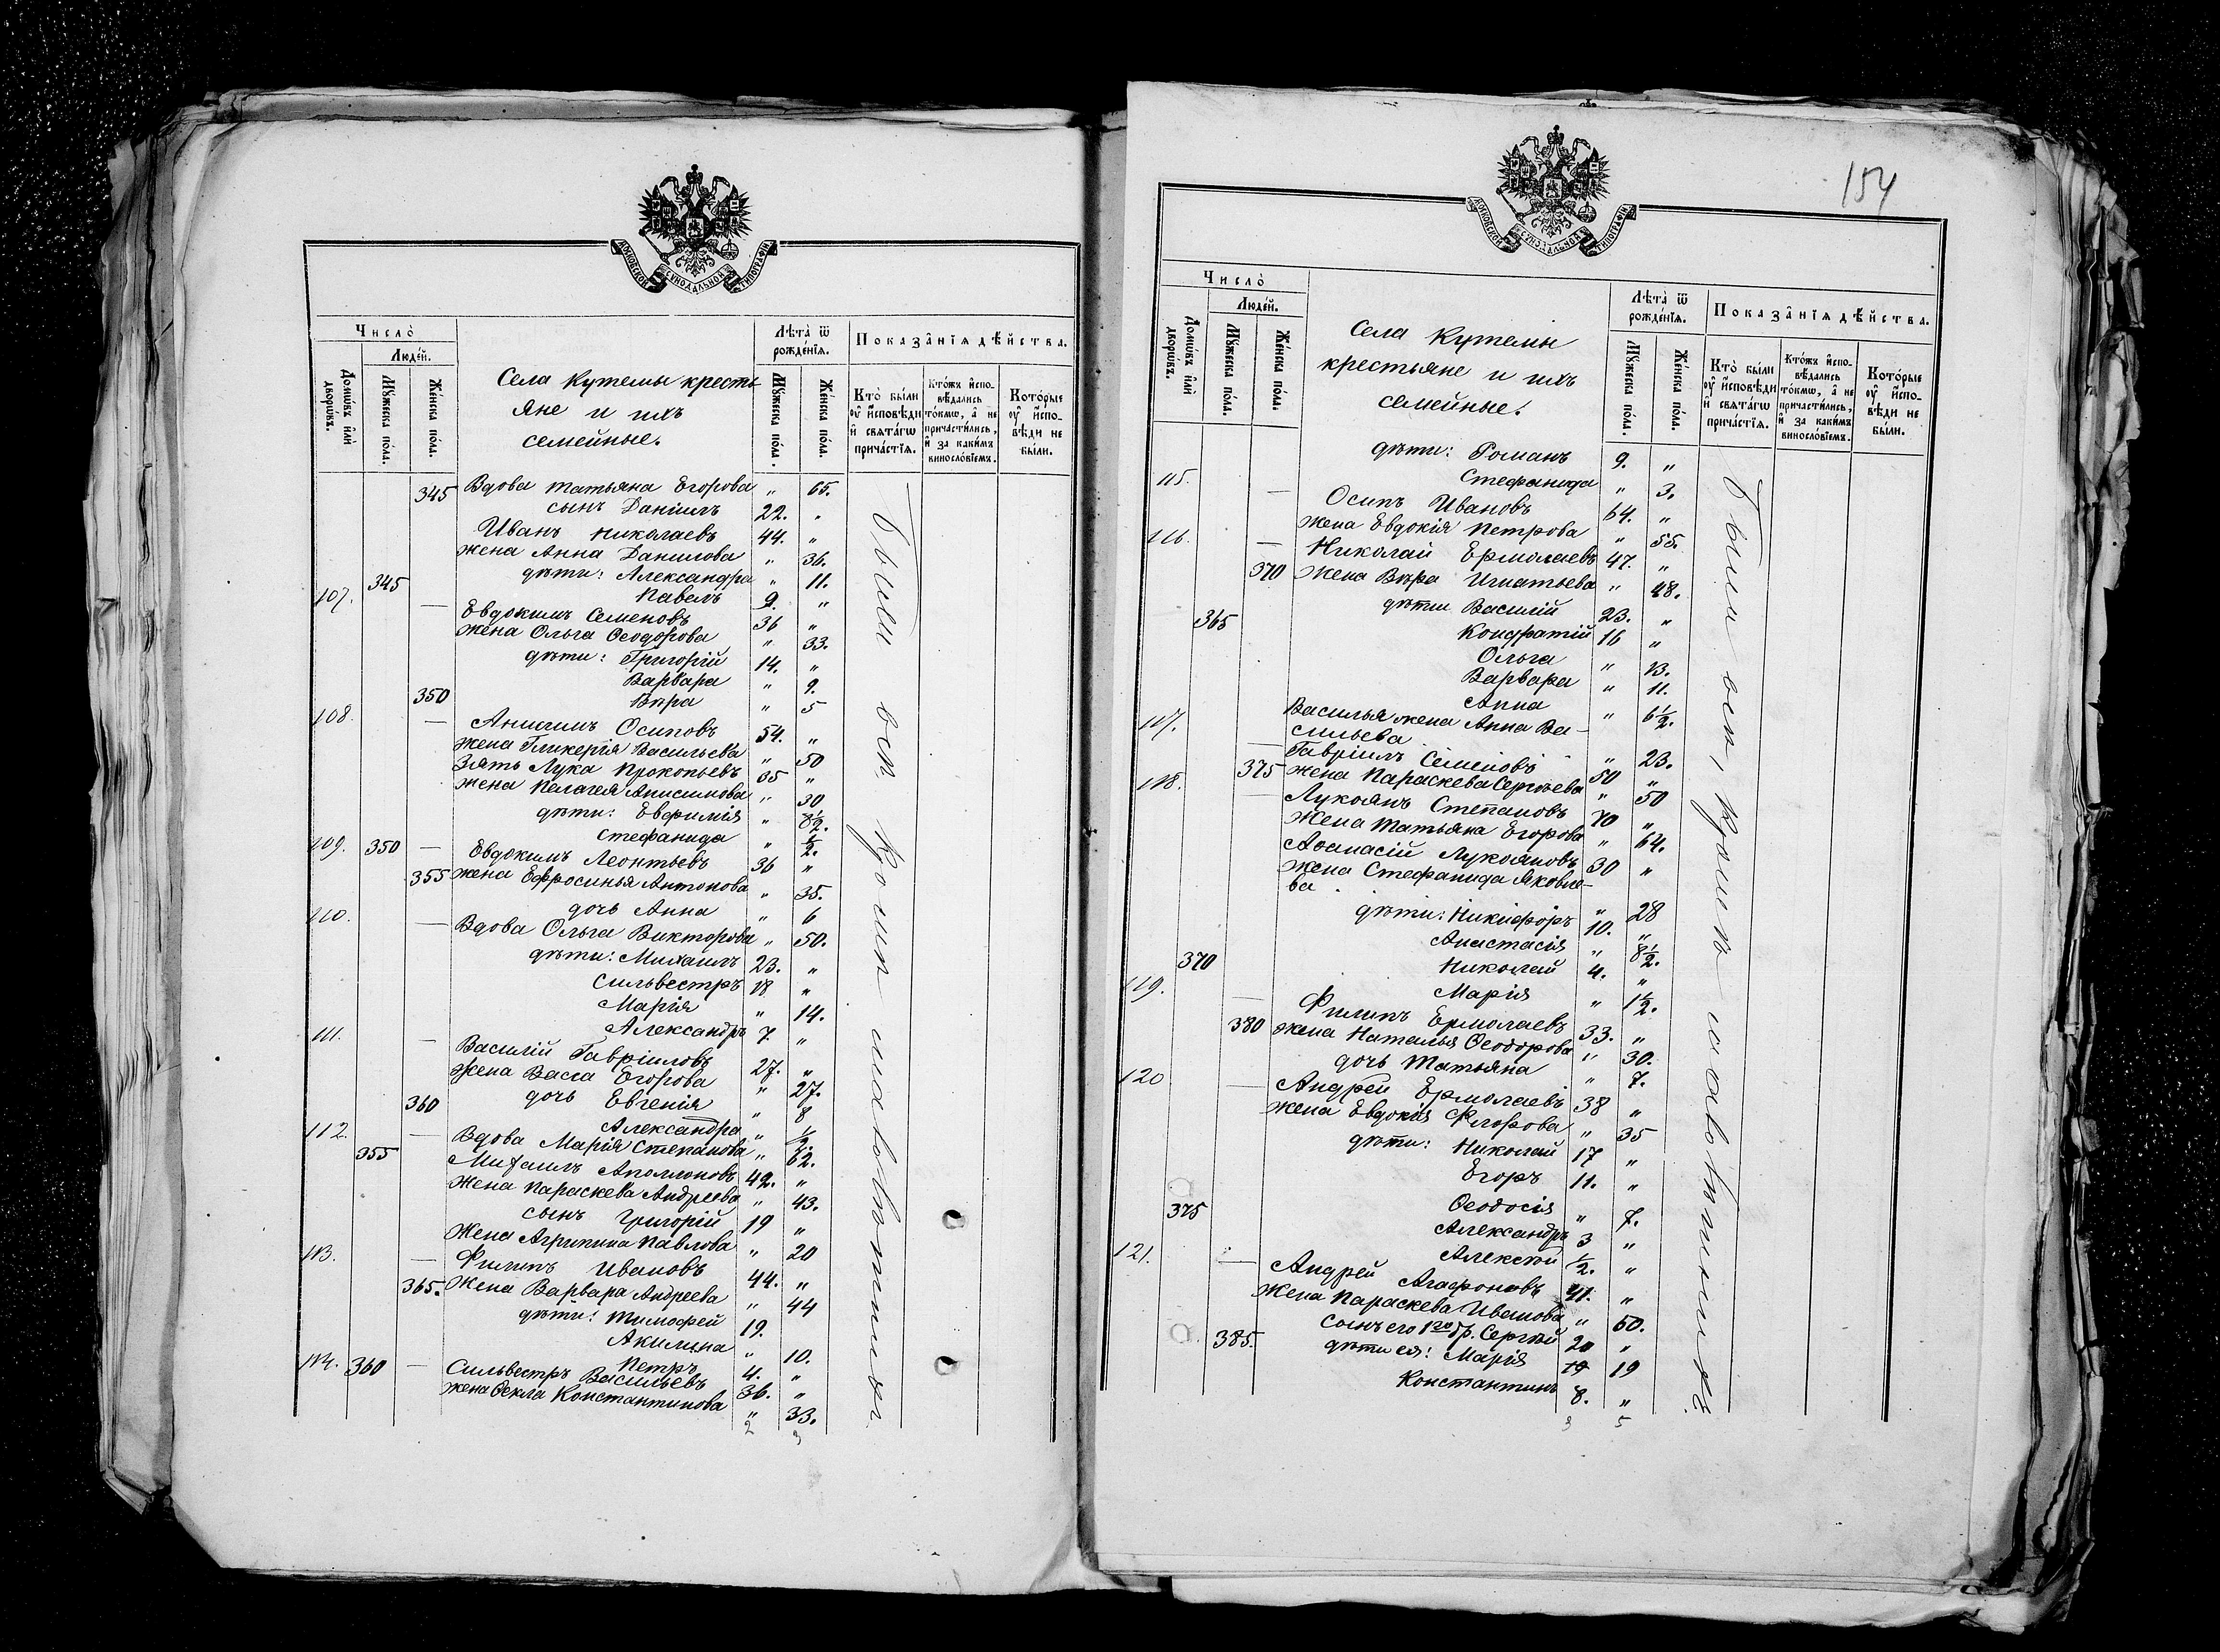 МОСКОВСКОЙ СѴНОДАЛЬНОЙ ТИПОГРАФІИ
Число̀
Людей.
Домѡвъ и҆лѝ дворѡвъ.
Мꙋжеска пола.
Женска пола.
Села Кутемы кресть
яне и ихъ
семейные.
Лѣта̀ ѿ рожденїѧ.
Мꙋжеска пола.
Женска пола.
Показанїѧ дѣйства.
Кто̀ были ᲂу҆ и҆сповѣди и҆ свѧтагѡ причастїѧ.
Ктожъ и҆сповѣдались токмѡ, а҆ не причастились, и҆ за какимъ винословїемъ.
Которые ᲂу҆ и҆споовѣди не были.
345 Вдова Татьяна Егорова " 65.
сынъ Даніилъ 22. "
Иванъ Николаевъ 44. "
жена Анна Данилова " 36.
дѣти: Александра " 11.
345 Павелъ 9. "
107. — Евдокимъ Семеновъ 36 "
жена Ольга Ѳеодорова " 33.
дѣти: Григорій 14. "
Варвара " 9.
350 Вѣра " 5
108. — Анисимъ Осиповъ 54. "
жена Гликерія Васильева " 50
Зять Лука Прокопьевъ 35 "
жена Пелагея Анисимова " 30
дѣти: Евфимія " 8½.
Стефанида " ½.
109. 350 — Евдокимъ Леонтьевъ 36 "
355 жена Ефросинья Антонова " 35.
дочь Анна " 6
110. — Вдова Ольга Викторова " 50.
дѣти: Михаилъ 23. "
Сильвестръ 18 "
Марія " 14.
Александръ 7. "
111. — Василій Гавріиловъ 27. "
жена Васса Егорова " 27.
360 дочь Евгенія " 8
Александра " ½.
112. — Вдова Марія Степанова " 62.
355 Михаилъ Аполлоновъ 42. "
жена Параскева Андреева " 43.
сынъ Григорій 19 "
жена Агрипина Павлова " 20
113. — Филипъ Ивановъ 44. "
365. жена Варвара Андреева " 44
дѣти: Тимофей 19.
Акилина " 10.
Петръ 4. "
114. 360 — Сильвестръ Васильевъ 36. "
жена Ѳекла Константинова " 33.
2 3
Были вси,
154
МОСКОВСКОЙ СѴНОДАЛЬНОЙ ТИПОГРАФІИ
Число̀
Людей.
Домѡвъ и҆лѝ дворѡвъ.
Мꙋжеска пола.
Женска пола.
Села Кутемы
крестьяне и ихъ
семейные.
Лѣта̀ ѿ рожденїѧ.
Мꙋжеска пола.
Женска пола.
Показанїѧ дѣйства.
Кто̀ были ᲂу҆ и҆сповѣди и҆ свѧтагѡ причастїѧ.
Ктожъ и҆сповѣдались токмѡ, а҆ не причастились, и҆ за какимъ винословїемъ.
Которые ᲂу҆ и҆сповѣди не были.
дѣти: Романъ 9. "
Стефанида " 3.
115. — Осипъ Ивановъ 64. "
жена Евдокія Петрова " 55.
116. — Николай Ермолаевъ 47. "
370 жена Вѣра Игнатьева " 48.
дѣти Василій 23. "
365 Кондратій 16 "
Ольга " 13.
Варвара " 11.
Анна " 6½.
Василья жена Анна Ва-
сильева " 23.
117. — Гавріилъ Семеновъ 50 "
375 жена Параскева Сергѣева " 50
118. — Лукоянъ Степановъ 70 "
жена Татьяна Егорова " 64.
Аѳанасій Лукояновъ 30 "
жена Стефанида Яковле-
ва " 28
дѣти: Никифоръ 10. "
Анастасія " 8½.
370 Николай 4. "
Марія " 1½.
119. — Филипъ Ермолаевъ 33. "
380 жена Наталья Ѳеодорова " 30.
дочь Татьяна " 7.
120 — Андрей Ермолаевъ 38 "
жена Евдокія Флорова " 35
дѣти: Николай 17 "
Егоръ 11. "
Ѳеодосія " 7.
375 Александръ 3 "
Алексѣй ½. "
121. — Андрей Агафоновъ 41. "
жена Параскева Иванова " 50.
сынъ его 1го бр. Сергѣй 20 "
385. дѣти ея: Марія 19 19
Константинъ 8. "
3 5
Были вси,